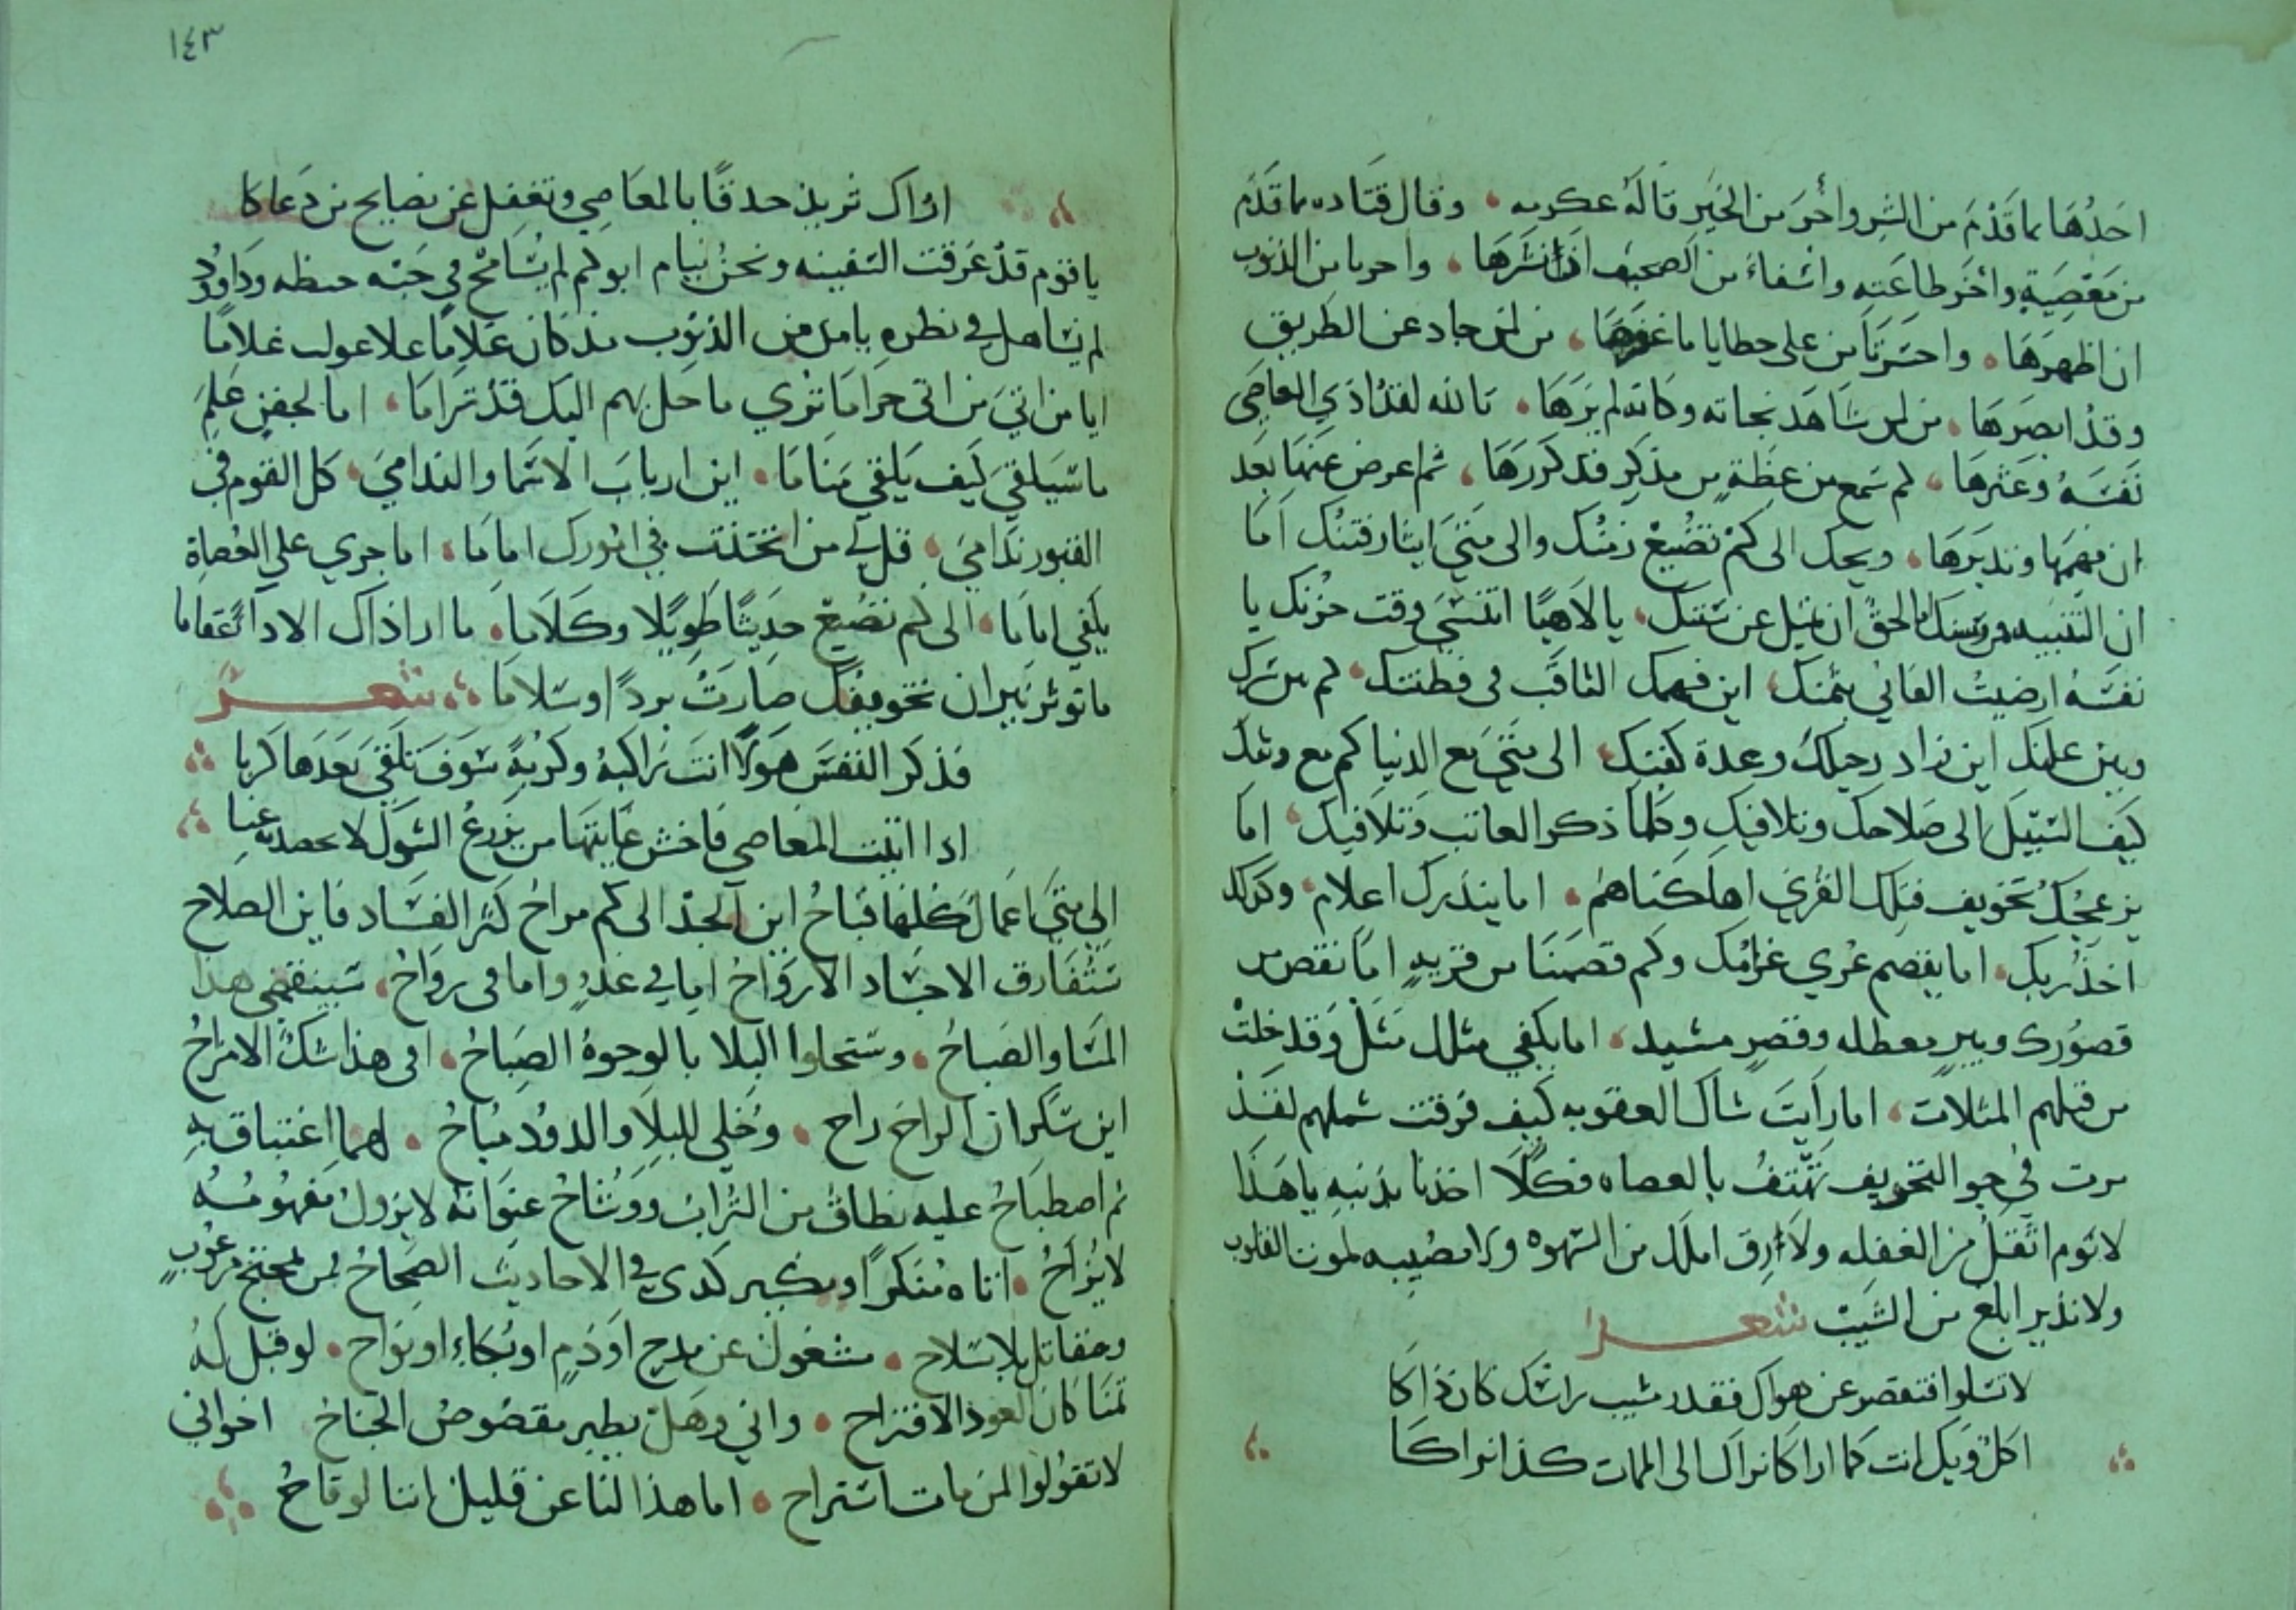 احدها ما قدم من الشر واخر من الخير قاله عكرمه وقال قتاده ما قدم
من معصية واخر طاعته واشفاء من الصحيف اذا نشرها واحربا من الذنوب
ان اظهرها واحسرتا من على خطايا ما غفرها من لمن حاد عن الطريق
وقد ابصرها من لمن شاهد نجاته وكانه لم يرها تالله لقد اذي العاصي
نفسه وعثرها لم سمع من عظة من مذكر قد كررها ثم اعرض عنها بعد
ان فهمها وتدبرها ويحك الى كم تضيع زمنك والى متي ايثار فتنك اما
ان التنبيه من الحق ان تميل عن سننك يا لاهيا اتنسي وقت حزنك يا
نفسه ارضيت الفاني بثمنك اين فهمك الثاقب في فطنتك لم من سرك
وبين علنك اين زاد رحيلك وعدة كفنك الى متي مع الدنيا كم مع وثنك
كيف السبيل الى صلاحك وتلافيك وكلما ذكر العاتب وتلافيك اما
يزعجك تخويف فتلك القري اهلكناهم اما ينذرك اعلام وكذلك
اخذ ربك اما يفصم عري غرامك وكم قصمنا من قرية اما نقص من
قصورك وبير معطله وقصر مشيد اما يكفي مثلك مثل وقد خلت
من قبلهم المثلات اما رايت شاك العقوبه كيف فرقت شملهم لقد
مرت في جو التخويف تهتف بالعصاه فكلا اخذنا بذنبه يا هذا
لا نوم اثقل من الغفله ولا رق املك من الشهوه ولا مصيبه لموت القلوب
ولا نذير ابلغ من الشيب شعرا
لا تسلوا فتقصر عن هواك فقد مشيب راسك كان ذاكا
اكل وبك انت كما اراكا تراك الى الممات كذا تراكا
١٤٣
اراك تزيد حدقا بالمعاصي وتغفل عن نصايح من دعاكا
يا قوم قد غرقت السفينه ونحن نيام ابوكم لم يسامح في حبه حنطه وداود
لم يتساهل في نظره يا مدمن الذنوب مذ كان غلاما علا عولت غلاما
ايا من اتي من اتى حراما تري ما حل بهم اليك قد تراما اما لجفن علم
ما سيلقي كيف يلقي مناما اين ارباب الاسما والندامي كل القوم في
القبور ندامي قل لي من اتخذت في امورك اماما اما جري على العصاة
يلقي اماما الى كم تضيع حديثا طويلا وكلاما ما ارا ذاك الادا عقاما
ما توثر نيران تخويفك صارت بردا وسلاما شعر
فذكر النفس هولا انت راكبه وكربة سوف تلقي بعدها كربا
اذا اتيت المعاصي فاخش غايتها من يزرع الشوك لا يحصد به عنبا
الى متي اعمال كلها قباح اين الجد الى كم مراح كثر الفساد فاين الصلاح
ستفارق الاجساد الارواح اما في غدو واما في رواح سينقضي هذا
المسا والصباح وستخلوا البلا بالوجوه الصباح افي هذا شك الامراح
اين سكران الراح راح وخلي للبلا والدود مباح لهما اغتباق به
ثم اصطباح عليه نطاق من التراب ووشاح عنوانه لا يزول مفهومسه
لا يزاح اتاه منكرا ونكير كدى في الاحاديث الصحاح من لمحتج مرعوب
ومقاتل بلا سلاح مشغول عن مدح او ذم او بكاء او نواح لو قبل له
تمنا كان العود الاقتراح واني وهل يطير مقصوص الجناح اخواني
لا تقولوا لمن مات استراح اما هذا لنا عن قليل اننا لوقاح